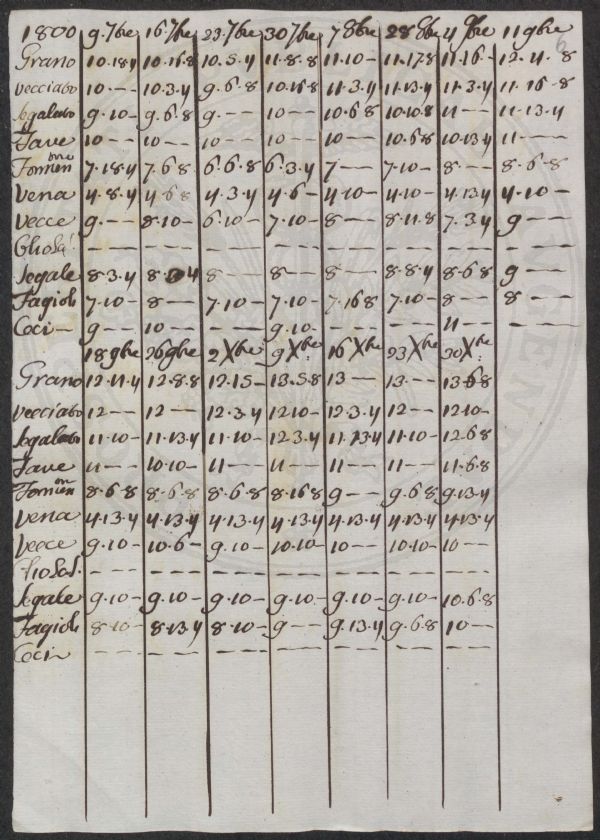 1800 9.7bre 16 7bre 23.7bre 30 7bre 7 8bre 28 8bre 4 9bre 11 9bre
Grano 10.18.4 10.16.8 10.5.4 11.8.8 11.10- 11.17.8 11.16- 12.4.8
vecciato 10.-- 10.3.4 9.6.8 10.16.8 11.3.4 11.13.4 11.3.4 11.16.8
segalato 9.10- 9.6.8 9.-- 10-- 10.6.8 10.10.8 11-- 11.13.4
Fave 10-- 10-- 10-- 10-- 10-- 10.6.8 10.13.4 11--
Formenone 7.18.4 7.6.8 6.6.8 6.3.4 7-- 7.10- 8.-- 8.6.8
vena 4.8.4 4.6.8 4.3.4 4.6- 4.10- 4.10- 4.13.4 4.10-
vecce 9.-- 8.10- 6.10- 7.10- 8-- 8.11.8 7.3.4 9--
--- --- --- --- --- --- --- ---
segale 8.3.4 8. 4 8-- 8-- 8-- 8.8.4 8.6.8 9--
Fagioli 7.10- 8-- 7.10- 7.10- 7.16.8 7.10- 8-- 8--
Ceci 9-- 10-- --- 9.10- --- --- 11-- ---
18 9bre 26 9bre 2 Xbre 9 Xbre 16 Xbre 23 Xbre 30 Xbre
Grano 12.11.4 12.8.8 12.15- 13.5.8 13-- 13.-- 13.6.8
vecciato 12-- 12-- 12.3.4 12.10- 12.3.4 12-- 12.10-
segalato 11.10- 11.13.4 11.10- 12.3.4 11.13.4 11.10- 12.6.8
Fave 11-- 10.10- 11-- 11-- 11-- 11-- 11.6.8
Formenone 8.6.8 8.6.8 8.6.8 8.16.8 9-- 9.6.8 9.13.4
vena 4.13.4 4.13.4 4.13.4 4.13.4 4.13.4 4.13.4 4.13.4
vecce 9.10- 10.6- 9.10- 10.10- 10-- 10.10- 10--
--- --- --- --- --- --- ---
segale 9.10- 9.10- 9.10- 9.10- 9.10- 9.10- 10.6.8
Fagioli 8.10- 8.13.4 8.10- 9-- 9.13.4 9.6.8 10--
Ceci --- --- --- --- --- --- ---